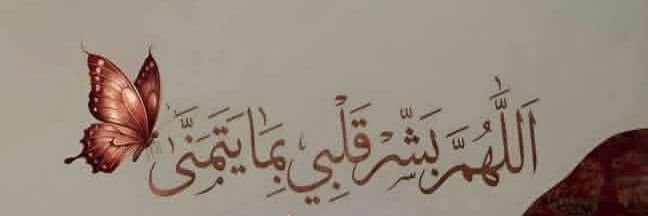 اَللَّهُمَّ بَشِّرْ قَلْبِي بِمَا يَتَمَنَّىٰ